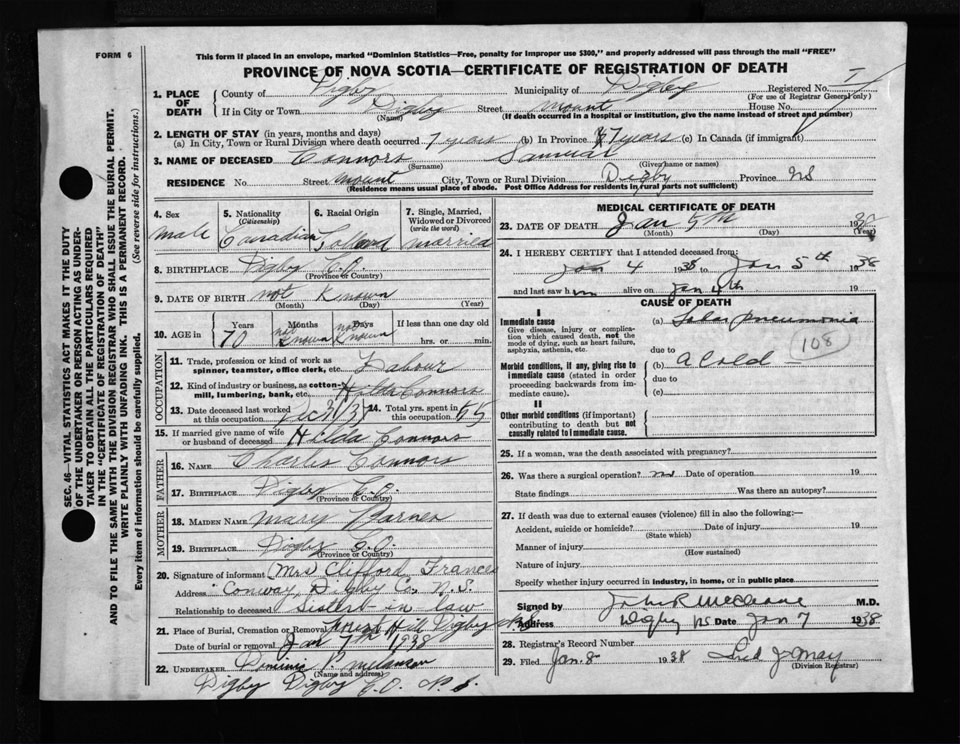 FORM 6
This form if placed in an envelope, marked "Dominion Statistics—Free, penalty for improper use $300," and properly addressed will pass through the mail "FREE"
PROVINCE OF NOVA SCOTIA—CERTIFICATE OF REGISTRATION OF DEATH
SEC. 46—VITAL STATISTICS ACT MAKES IT THE DUTY
OF THE UNDERTAKER OR PERSON ACTING AS UNDER-
TAKER TO OBTAIN ALL THE PARTICULARS REQUIRED
IN THE "CERTIFICATE OF REGISTRATION OF DEATH"
AND TO FILE THE SAME WITH THE DIVISION REGISTRAR WHO SHALL ISSUE THE BURIAL PERMIT.
WRITE PLAINLY WITH UNFADING INK. THIS IS A PERMANENT RECORD.
Every item of information should be carefully supplied. (See reverse side for instructions.)
1. PLACE OF DEATH
County of Digby Municipality of Digby Registered No.
(For use of Registrar General only)
If in City or Town Digby Street Mount House No.
(Name) (If death occurred in a hospital or institution, give the name instead of street and number)
2. LENGTH OF STAY (in years, months and days)
(a) In City, Town or Rural Division where death occurred 7 years (b) In Province 7 years (c) In Canada (if immigrant)
3. NAME OF DECEASED Connors Samual
(Surname) (Given name or names)
RESIDENCE No. Street Mount City, Town or Rural Division Digby Province NS
(Residence means usual place of abode. Post Office Address for residents in rural parts not sufficient)
4. Sex Male
5. Nationality (Citizenship) Canadian
6. Racial Origin
7. Single, Married, Widowed or Divorced (write the word) Married
8. BIRTHPLACE Digby Co.
(Province or Country)
9. DATE OF BIRTH not Known
(Month) (Day) (Year)
10. AGE in Years 70 Months not Known Days not Known If less than one day
hrs. or min.
OCCUPATION
11. Trade, profession or kind of work as spinner, teamster, office clerk, etc. Labour
12. Kind of industry or business, as cotton-mill, lumbering, bank, etc. Hilda Connors
13. Date deceased last worked at this occupation
14. Total yrs. spent in this occupation 55
15. If married give name of wife or husband of deceased Hilda Connors
FATHER
16. NAME Charles Connors
17. BIRTHPLACE Digby Co.
(Province or Country)
MOTHER
18. MAIDEN NAME Mary
19. BIRTHPLACE Digby Co.
(Province or Country)
20. Signature of informant Mrs Clifford Frances
Address Conway, Digby Co, N.S.
Relationship to deceased Sister in law
21. Place of Burial, Cremation or Removal Hill Digby NS
Date of burial or removal Jan 7th 1938
22. UNDERTAKER P. Melanson
(Name and address)
Digby Digby Co. N.S.
MEDICAL CERTIFICATE OF DEATH
23. DATE OF DEATH Jan 5th 1938
(Month) (Day)
24. I HEREBY CERTIFY that I attended deceased from:
Jan 4 1938 to Jan 5th 1938
and last saw him alive on Jan 4th 19
CAUSE OF DEATH
I
Immediate cause
Give disease, injury or complication which caused death, not the mode of dying, such as heart failure, asphyxia, asthenia, etc.
(a) Lobar pneumonia
108
due to
Morbid conditions, if any, giving rise to immediate cause (stated in order proceeding backwards from immediate cause).
(b) A Cold
due to
(c)
II
Other morbid conditions (if important) contributing to death but not causally related to immediate cause.
25. If a woman, was the death associated with pregnancy?
26. Was there a surgical operation? no Date of operation 19
State findings Was there an autopsy?
27. If death was due to external causes (violence) fill in also the following:—
Accident, suicide or homicide? Date of injury 19
(State which)
Manner of injury
(How sustained)
Nature of injury
Specify whether injury occurred in industry, in home, or in public place
Signed by John R McCleave M.D.
Address Digby NS Date Jan 7 1938
28. Registrar's Record Number
29. Filed Jan. 8 1938 Fred J May
(Division Registrar)